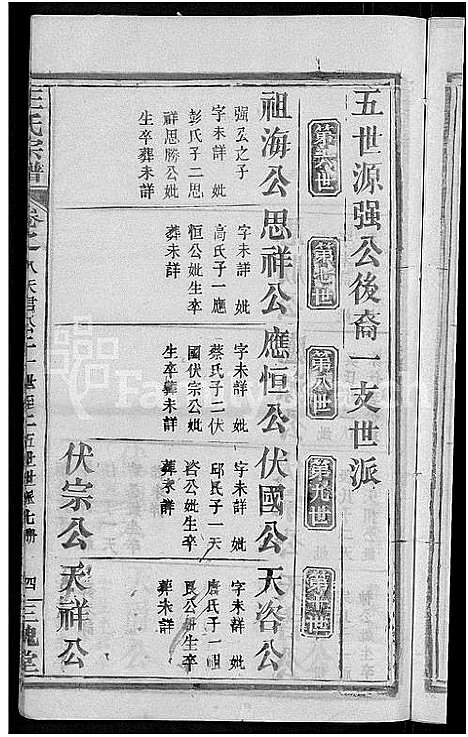 五世源强公後裔一支世派
第六世
第七世
第八世
第九世
第十世
祖海公
强公之子
字未詳 妣
彭氏子二思
祥思勝公妣
生卒葬未詳
思祥公
字未詳 妣
高氏子一應
恒公妣生卒
葬未詳
應恒公
字未詳 妣
蔡氏子二伏
國伏宗公妣
生卒葬未詳
伏國公
字未詳 妣
邱氏子一天
咨公妣生卒
葬未詳
天咨公
字未詳 妣
詹氏子一
艮公妣生卒
葬未詳
伏宗公
天祥公
王氏宗譜
四
三槐堂